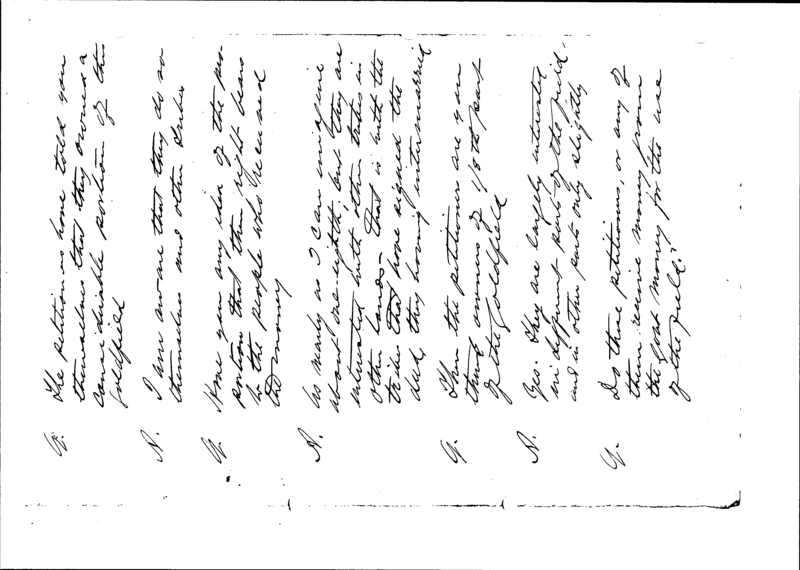 Q. The petitioners have told you
themselves that they owned a
considerable portion of this
goldfield
A. I am aware that they do so
themselves and other tribes
Q. Have you any idea of the pro-
portion that their right bears
to the people who received
the money
A. As nearly as I can imagine
about one-eighth, but they are
interested with other tribes in
other lands - that is with the
tribes that have signed the
deed, they having intermarried
Q. Then the petitioners are you
think owners of 1/8th part
of the Goldfield
A. Yes. They are largely interested
in different parts of the field,
and in other parts only slightly
Q. Do these petitioners, or any of
them receive money from
the Govt money for the use
of the field?